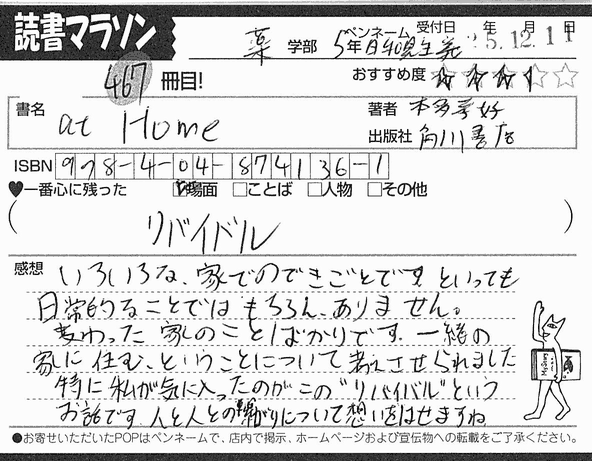 読書マラソン
薬 学部 5年 ペンネーム 日和見主義 受付日 年 月 日
5.12.11
467 冊目! おすすめ度
書名 at Home
著者 本多孝好
出版社 角川書店
ISBN 978-4-04-874136-1
♥一番心に残った 場面 ことば 人物 その他
( リバイバル )
感想 いろいろな、家でのできごとです。といっても
日常的なことではもちろん、ありません。
変わった家のことばかりです。一緒の
家に住む、ということについて考えさせられました
特に私が気に入ったのがこの“リバイバル”という
お話です。人と人との繋がりについて想いをはせますね
●お寄せいただいたPOPはペンネームで、店内で掲示、ホームページおよび宣伝物への転載をご了承ください。